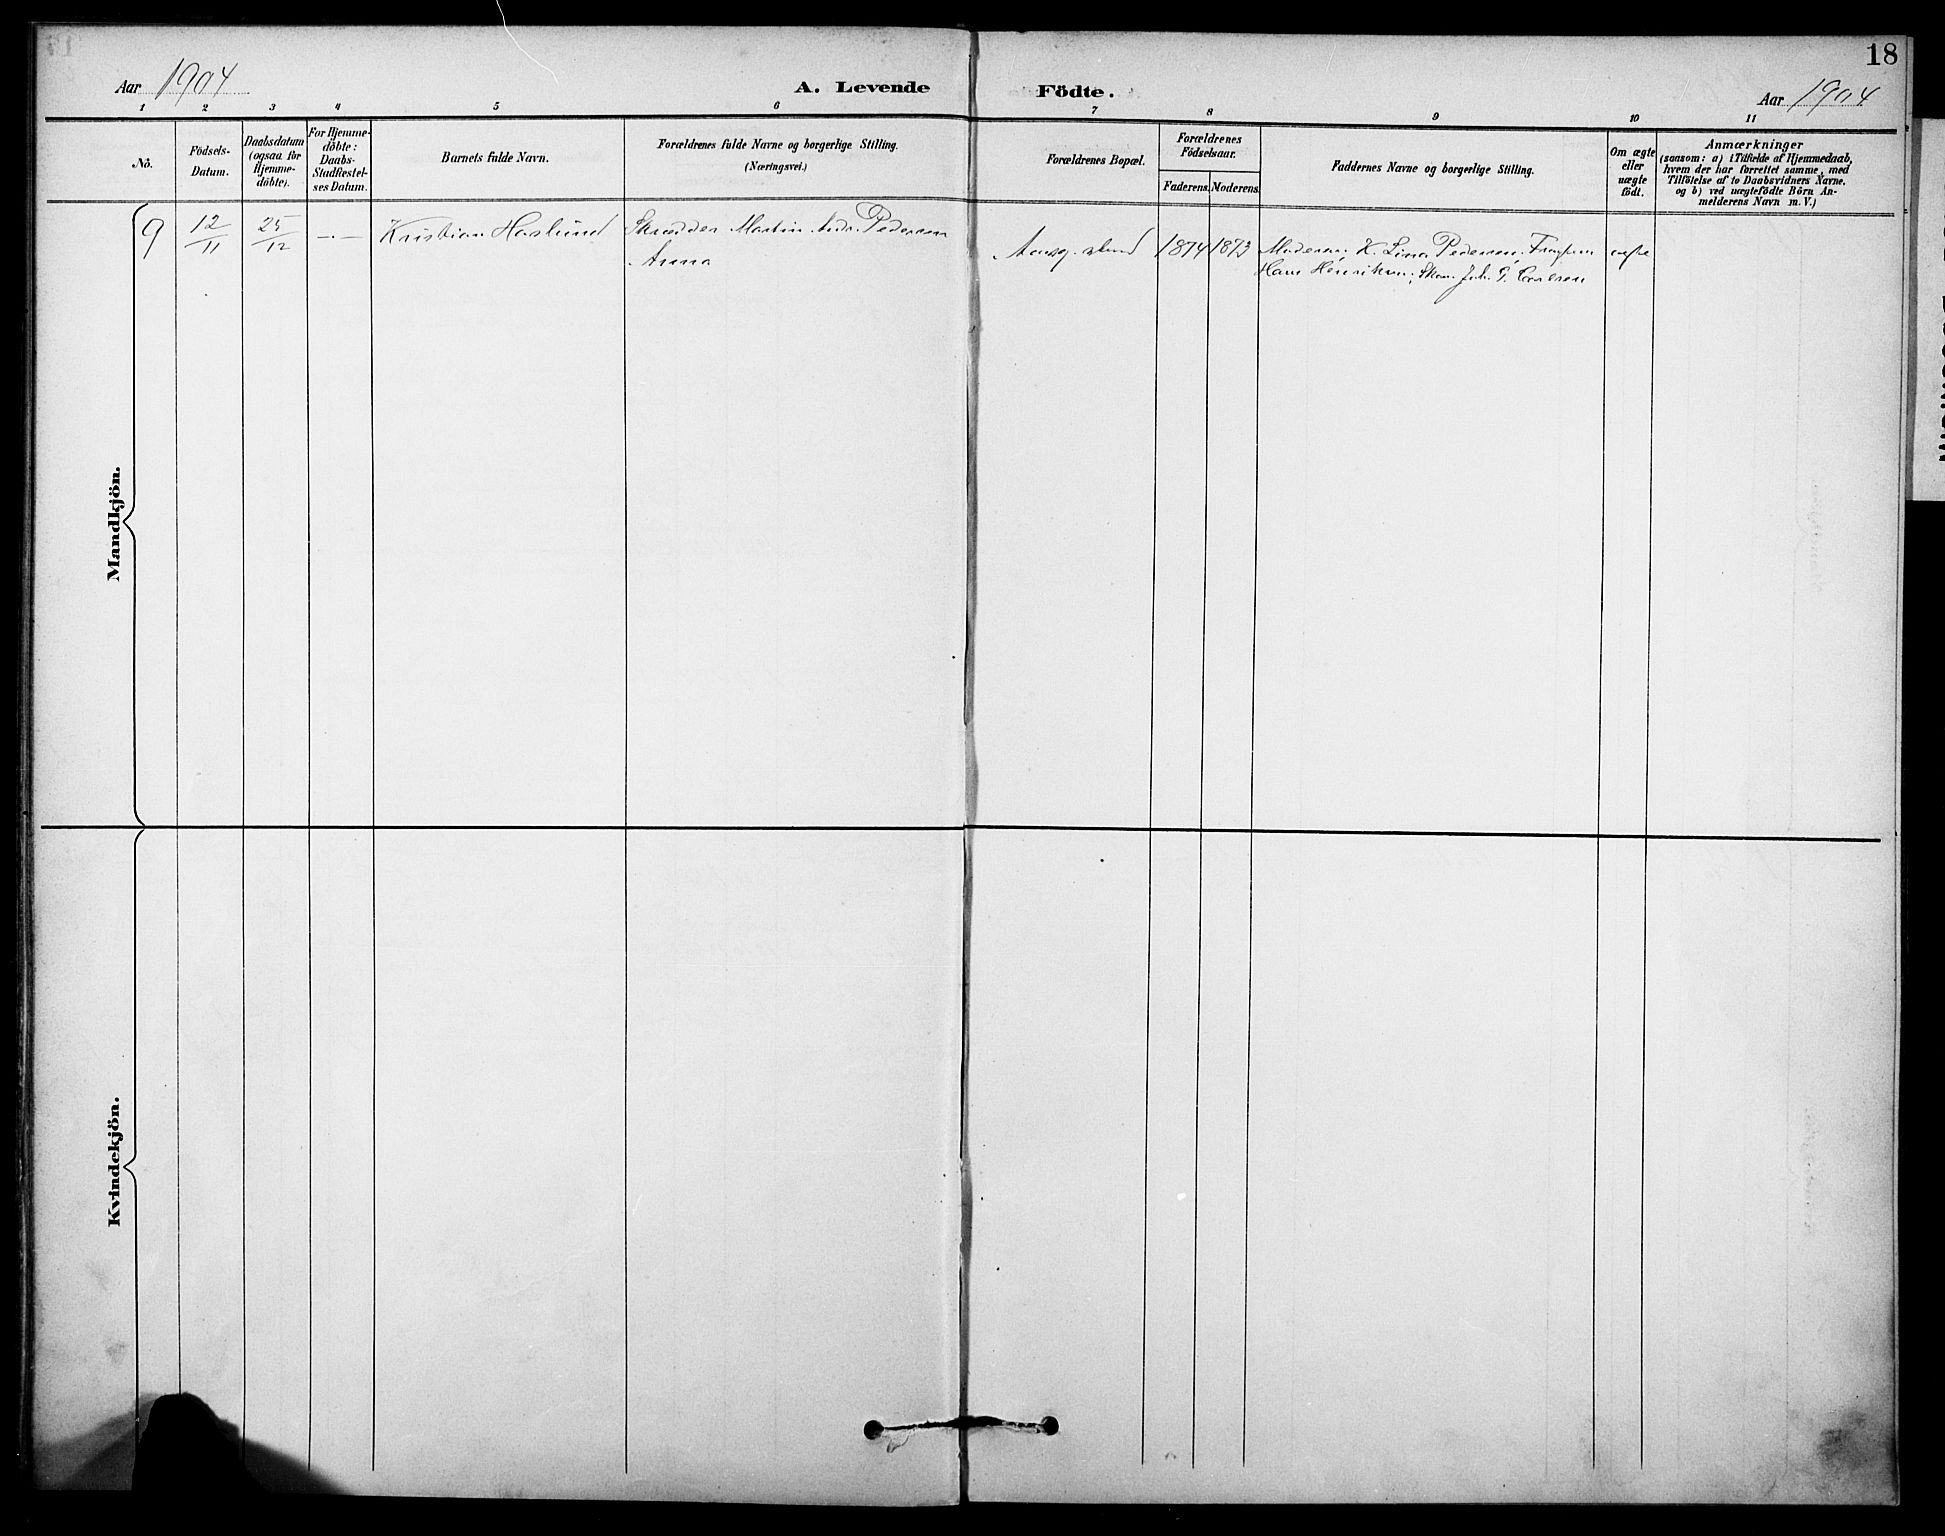 18
Aar 1904 A. Levende Födte. Aar 1904
1 2 3 4 5 6 7 8 9 10 11
No.
Födsels-
Datum.
Daabsdatum
(ogsaa for
Hjemme-
döbte).
For Hjemme-
döbte:
Daabs-
Stadfæstel-
ses Datum.
Barnets fulde Navn.
Forældrenes fulde Navne og borgerlige Stilling.
(Næringsvei.)
Forældrenes Bopæl.
Forældrenes
Födselsaar.
Faderens. Moderens.
Faddernes Navne og borgerlige Stilling.
Om ægte
eller
uægte
födt.
Anmærkninger
(saasom: a) i Tilfælde af Hjemmedaab,
hvem der har forrettet samme, med
Tilföielse af to Daabsvidners Navne,
og b) ved uægtefödte Börn An-
melderens Navn m. V.)
9 12/11 25/12 -.- Kristian Haslund Skrædder Martin Andr. Pedersen 1874 1873 Moderen; K. Lina Pedersen; ægte
Anna Hans Henriksen; Skom. Joh. P. Carlsen
Mandkjön.
Kvindekjön.